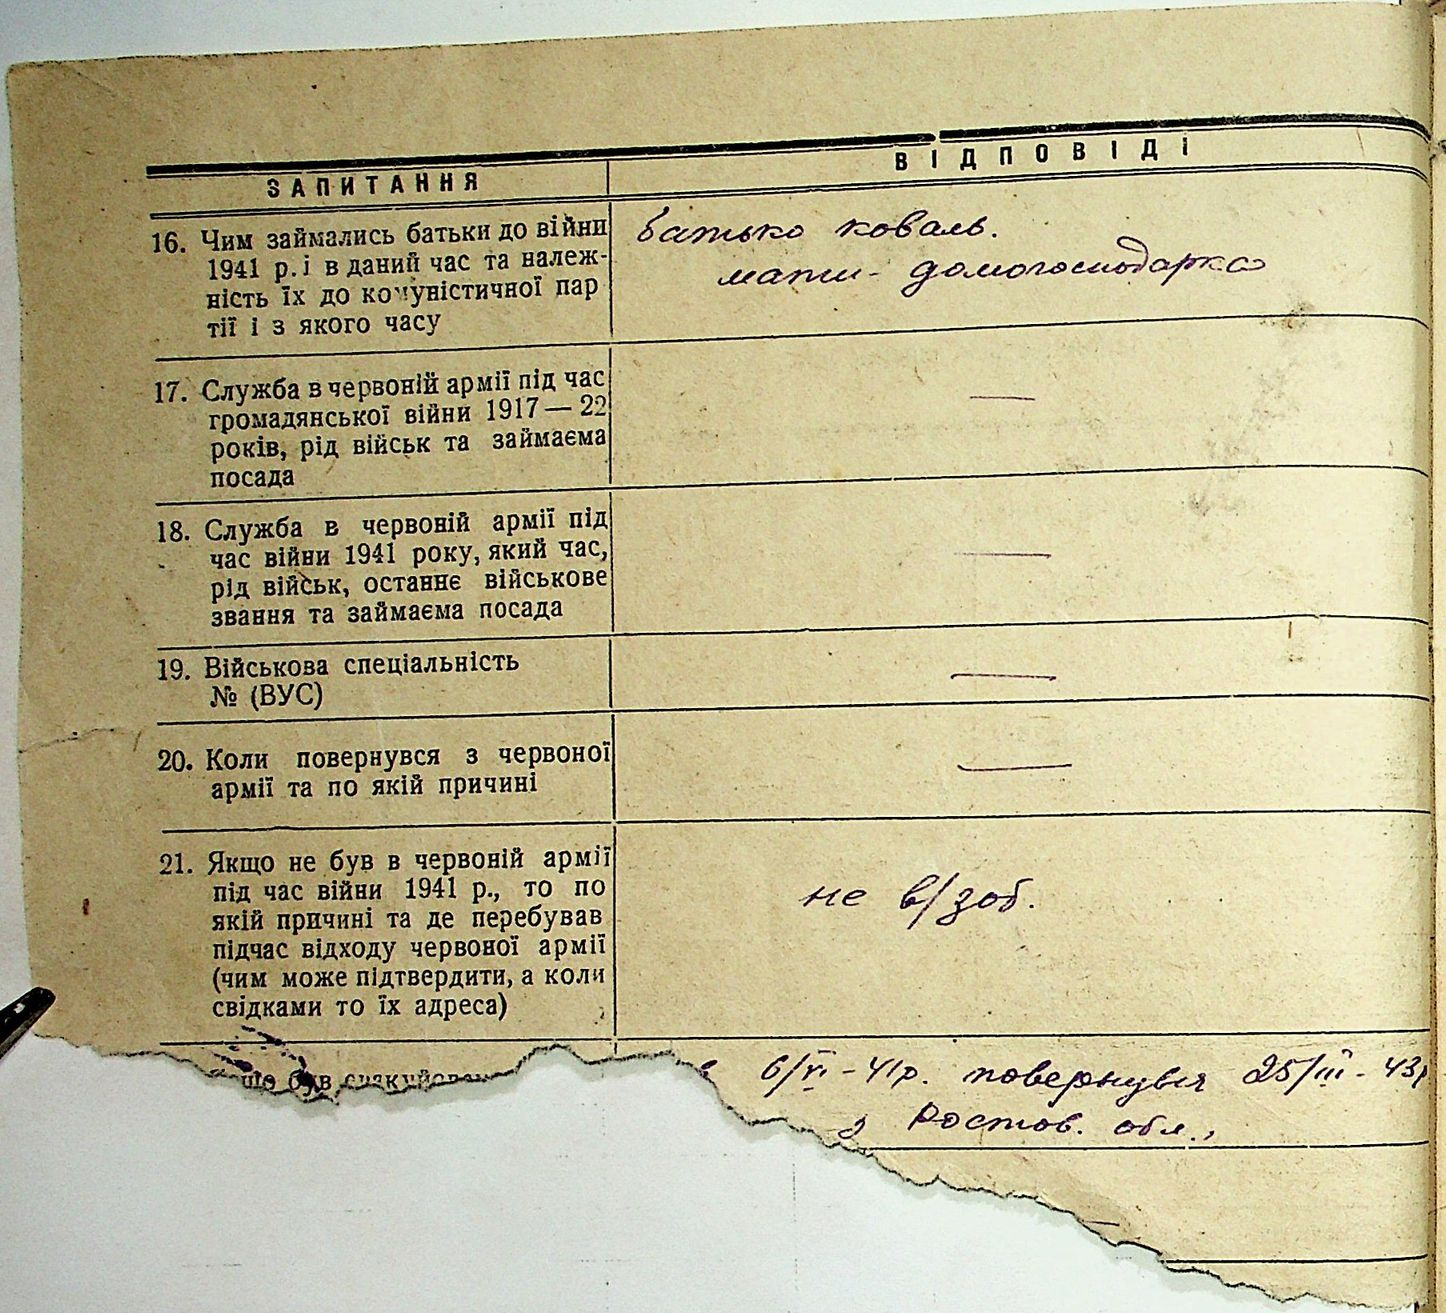 ЗАПИТАННЯ
ВІДПОВІДІ
16. Чим займались батьки до війни
1941 р. і в даний час та належ-
ність їх до комуністичної пар
тії і з якого часу
батько коваль.
мати - домогосподарка
17. Служба в червоній армії під час
громадянської війни 1917 — 22
років, рід військ та займаєма
посада
—
18. Служба в червоній армії під
час війни 1941 року, який час,
рід військ, останнє військове
звання та займаєма посада
—
19. Військова спеціальність
№ (ВУС)
—
20. Коли повернувся з червоної
армії та по якій причині
—
21. Якщо не був в червоній армії
під час війни 1941 р., то по
якій причині та де перебував
підчас відходу червоної армії
(чим може підтвердити, а коли
свідками то їх адреса)
не в/зоб.
був
6/VI - 41р. повернувся 25/III - 43р
з Ростов. обл.,